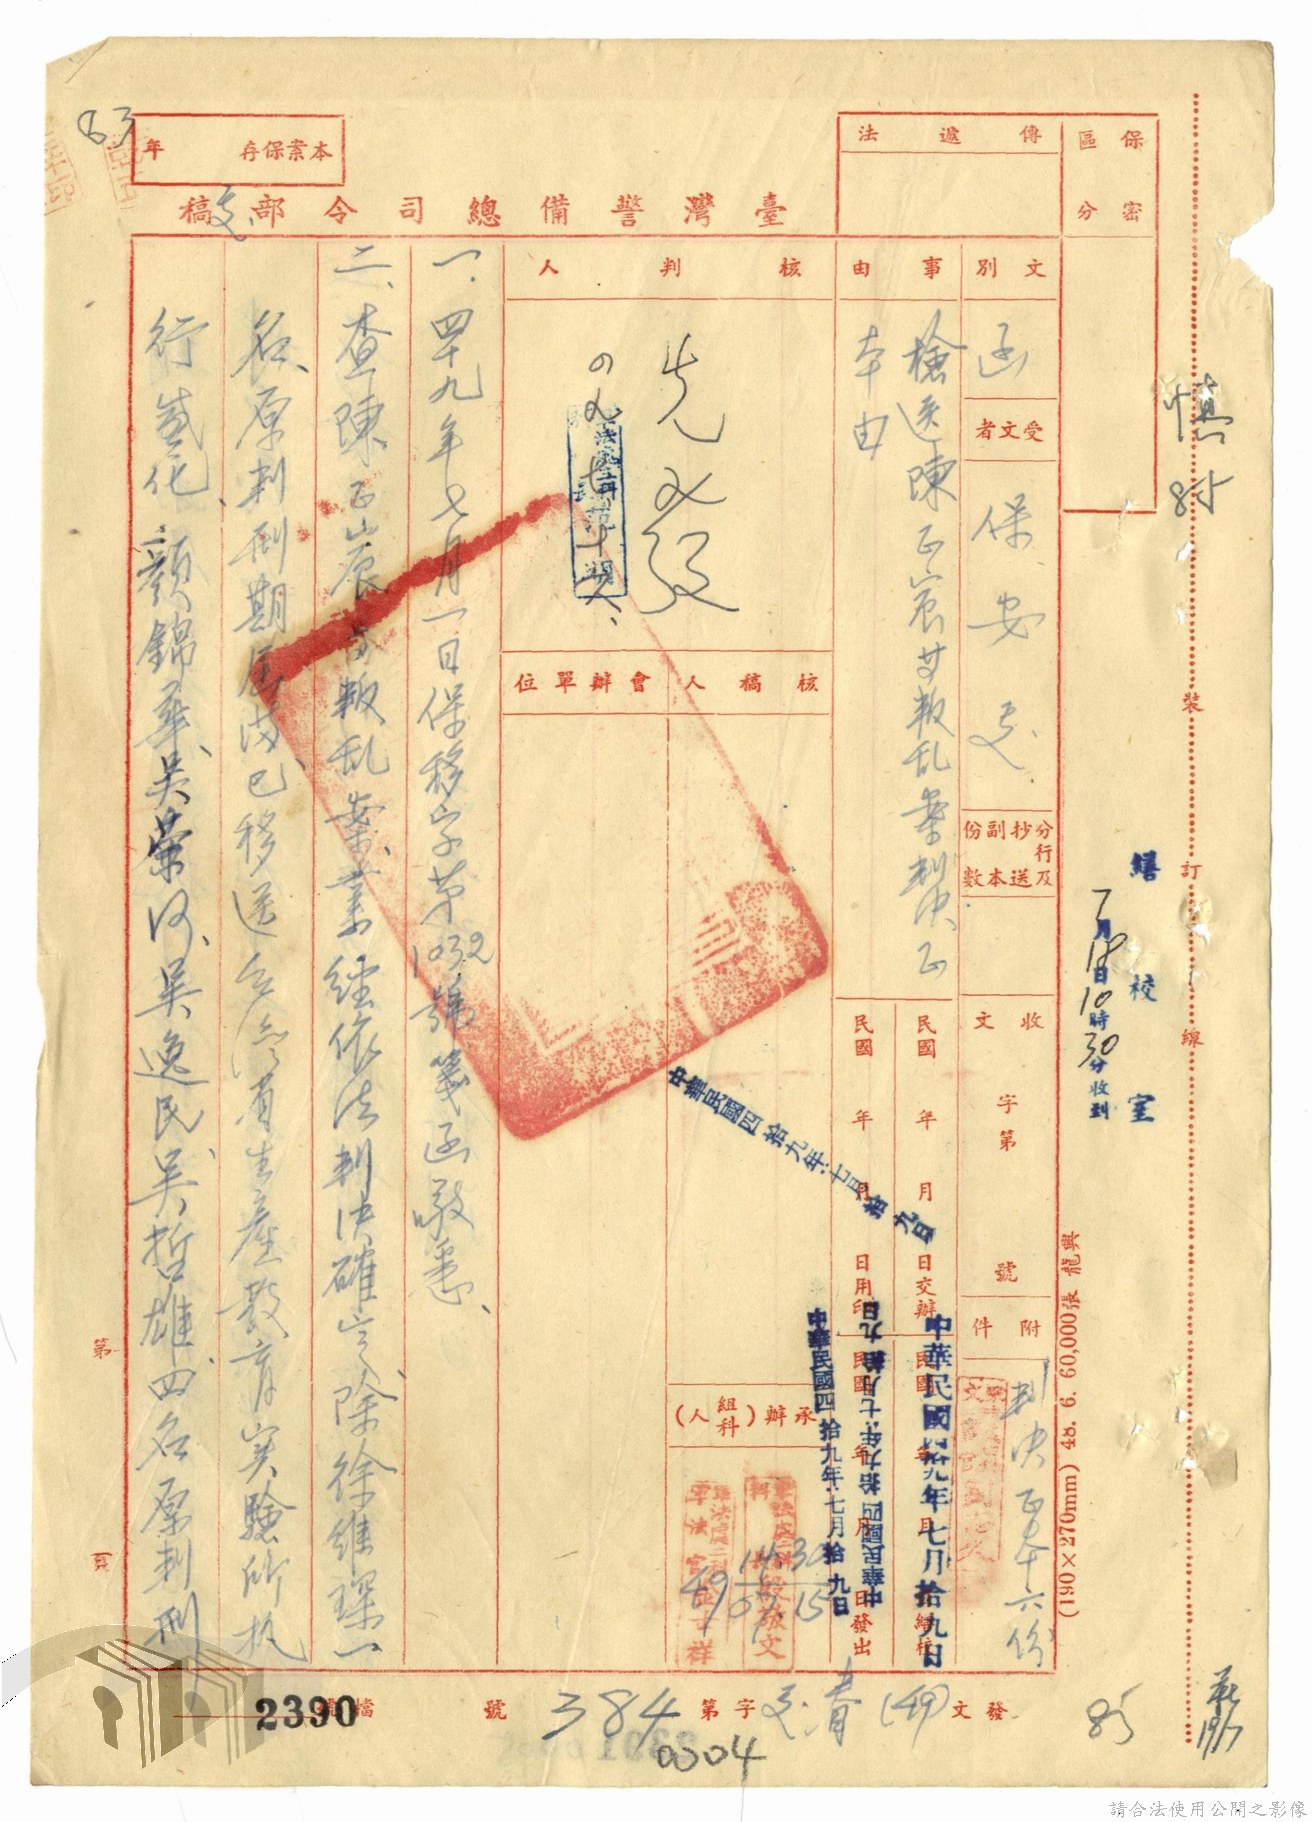 83
本案保存 年
臺灣警備總司令部文稿
傳遞法
保密區分
慎
85
文別
函
受文者
保安處
分行及抄送副本份數
收文 字第 號
附件
判決正本十六份
事由
檢送陳正宸等叛乱案判決正本由
民國 年 月 日交辦
民國 年 月 日用印
民國 年 月 日繕校
民國 年 月 日發出
中華民國四拾九年七月拾九日
中華民國四拾九年七月拾九日
中華民國四拾九年七月拾九日
中華民國四拾九年七月拾九日
核判人
核稿人
會辦單位
承辦(組科)人
一、四十九年七月一日保移字第1032號箋函敬悉、
二、查陳正宸等叛乱案、業經依法判決確定、除徐維琛一
名、原判刑期屆滿已移送台灣省生產教育實驗所執
行感化、顏錦華、吳榮河、吳逸民、吳哲雄、四名原判刑
繕校室
7月18日10時30分收到
裝
訂
線
(190×270mm) 48. 6. 60,000張 興龍
第 頁
發文(49)
字第384號
0004
檔號
2390
85
請合法使用公開之影像